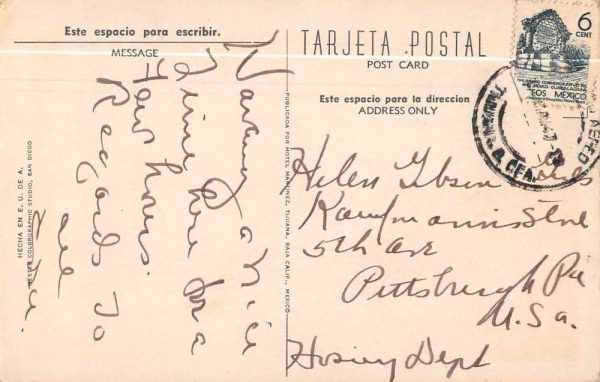 Este espacio para escribir.
MESSAGE
Having a nice
Time here for a
few hours.
Regards to
all
TARJETA POSTAL
POST CARD
Este espacio para la direccion
ADDRESS ONLY
Helen Gibson
Kaufmanns Store
5th Ave
Pittsburgh Pa
U.S.a.
Hosiery Dept
6
CENT
EOS MEXICO
AEREO
PUBLICADA POR MOTEL MARTINEZ, TIJUANA, BAJA CALIF., MEXICO
HECHA EN E. U. DE A.
COLORGRAPHIC STUDIO, SAN DIEGO